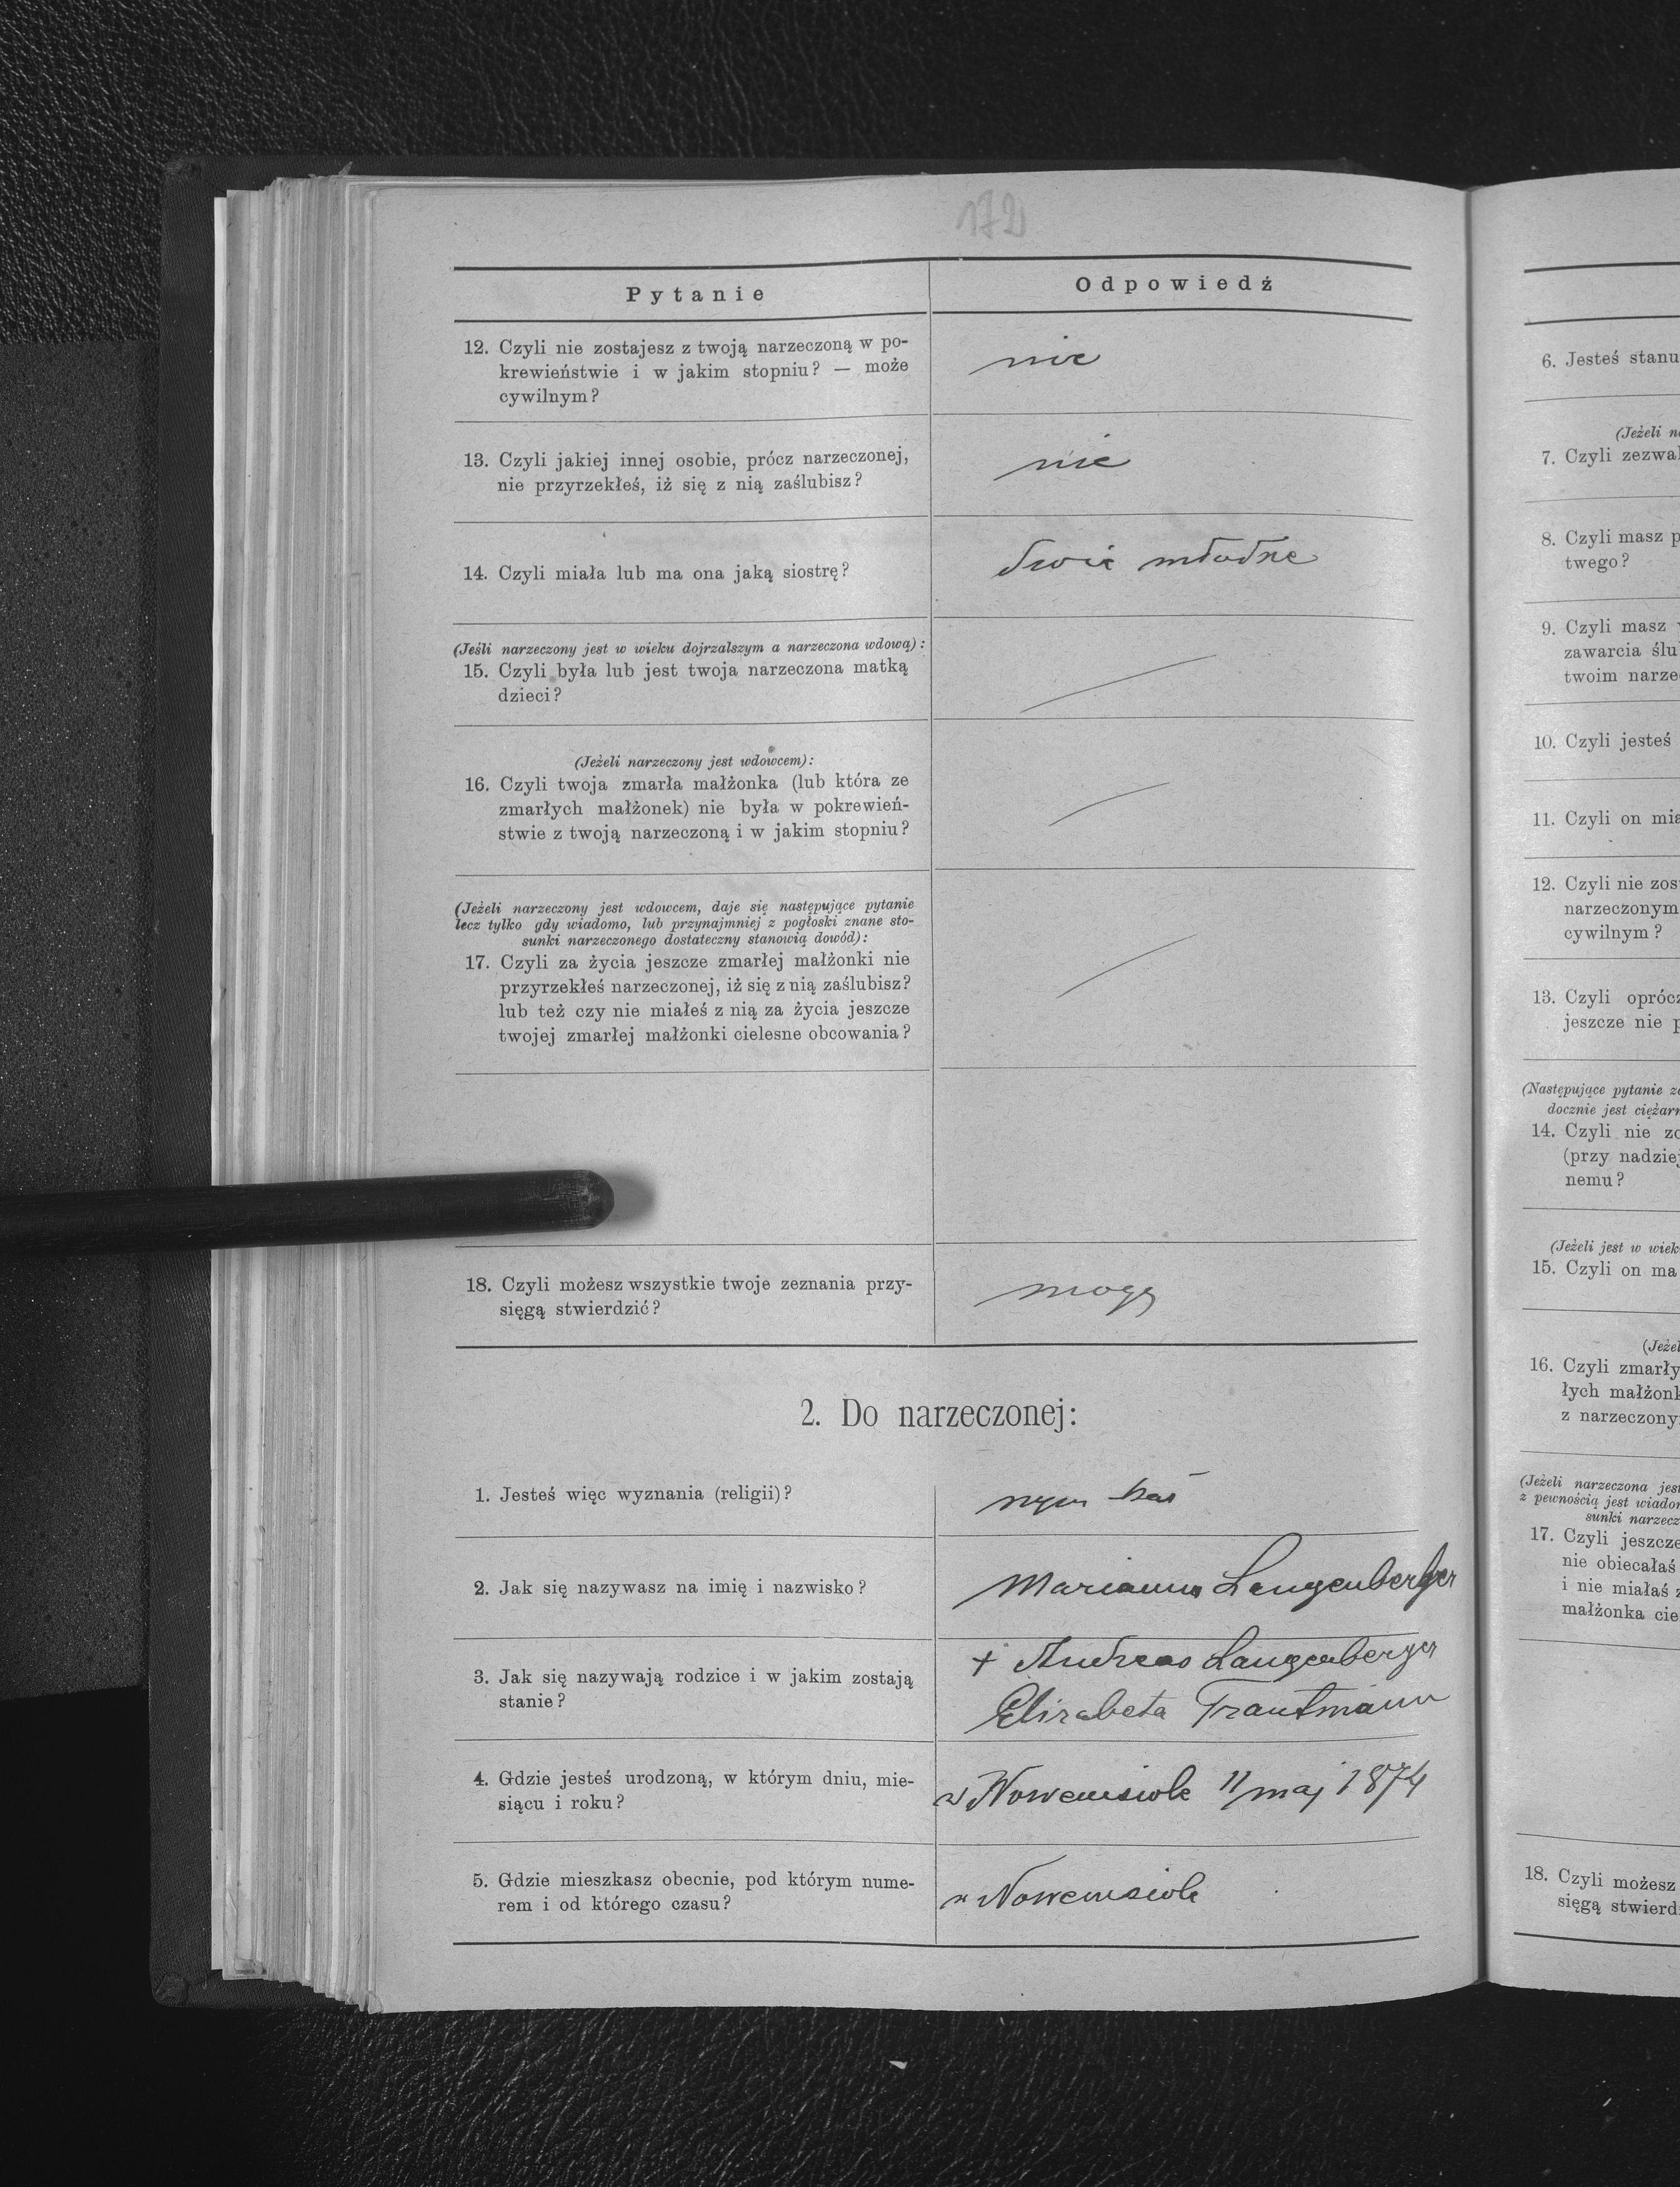 172
Pytanie
Odpowiedź
12. Czyli nie zostajesz z twoją narzeczoną w po-
krewieństwie i w jakim stopniu? — może
cywilnym?
nie
13. Czyli jakiej innej osobie, prócz narzeczonej,
nie przyrzekłeś, iż się z nią zaślubisz?
nie
14. Czyli miała lub ma ona jaką siostrę?
dwie młodsze
(Jeśli narzeczony jest w wieku dojrzalszym a narzeczona wdową):
15. Czyli była lub jest twoja narzeczona matką
dzieci?
(Jeżeli narzeczony jest wdowcem):
16. Czyli twoja zmarła małżonka (lub która ze
zmarłych małżonek) nie była w pokrewień-
stwie z twoją narzeczoną i w jakim stopniu?
(Jeżeli narzeczony jest wdowcem, daje się następujące pytanie
lecz tylko gdy wiadomo, lub przynajmniej z pogłoski znane sto-
sunki narzeczonego dostateczny stanowią dowód):
17. Czyli za życia jeszcze zmarłej małżonki nie
przyrzekłeś narzeczonej, iż się z nią zaślubisz?
lub też czy nie miałeś z nią za życia jeszcze
twojej zmarłej małżonki cielesne obcowania?
18. Czyli możesz wszystkie twoje zeznania przy-
sięgą stwierdzić?
mogę
2. Do narzeczonej:
1. Jesteś więc wyznania (religii)?
2. Jak się nazywasz na imię i nazwisko?
Marianna Langenberger
3. Jak się nazywają rodzice i w jakim zostają
stanie?
+ Andreas Langenberger
Elizabeta Trautmann
4. Gdzie jesteś urodzoną, w którym dniu, mie-
siącu i roku?
w Nowemsiole 11 maj 1874
5. Gdzie mieszkasz obecnie, pod którym nume-
rem i od którego czasu?
w Nowemsiole
6. Jesteś stanu
(Jeżeli n
7. Czyli zezwa
8. Czyli masz p
twego?
9. Czyli masz
zawarcia ślu
twoim narze
10. Czyli jesteś
11. Czyli on mia
12. Czyli nie zos
narzeczonym
cywilnym?
13. Czyli oprócz
jeszcze nie p
(Następujące pytanie z
docznie jest ciężar
14. Czyli nie zo
(przy nadziej
nemu?
(Jeżeli jest w wiek
15. Czyli on ma
(Jeżel
16. Czyli zmarły
łych małżonk
z narzeczony
(Jeżeli narzeczona jest
z pewnością jest wiado
sunki narzecz
17. Czyli jeszcze
nie obiecałaś
i nie miałaś z
małżonka cie
18. Czyli możesz
sięgą stwierd